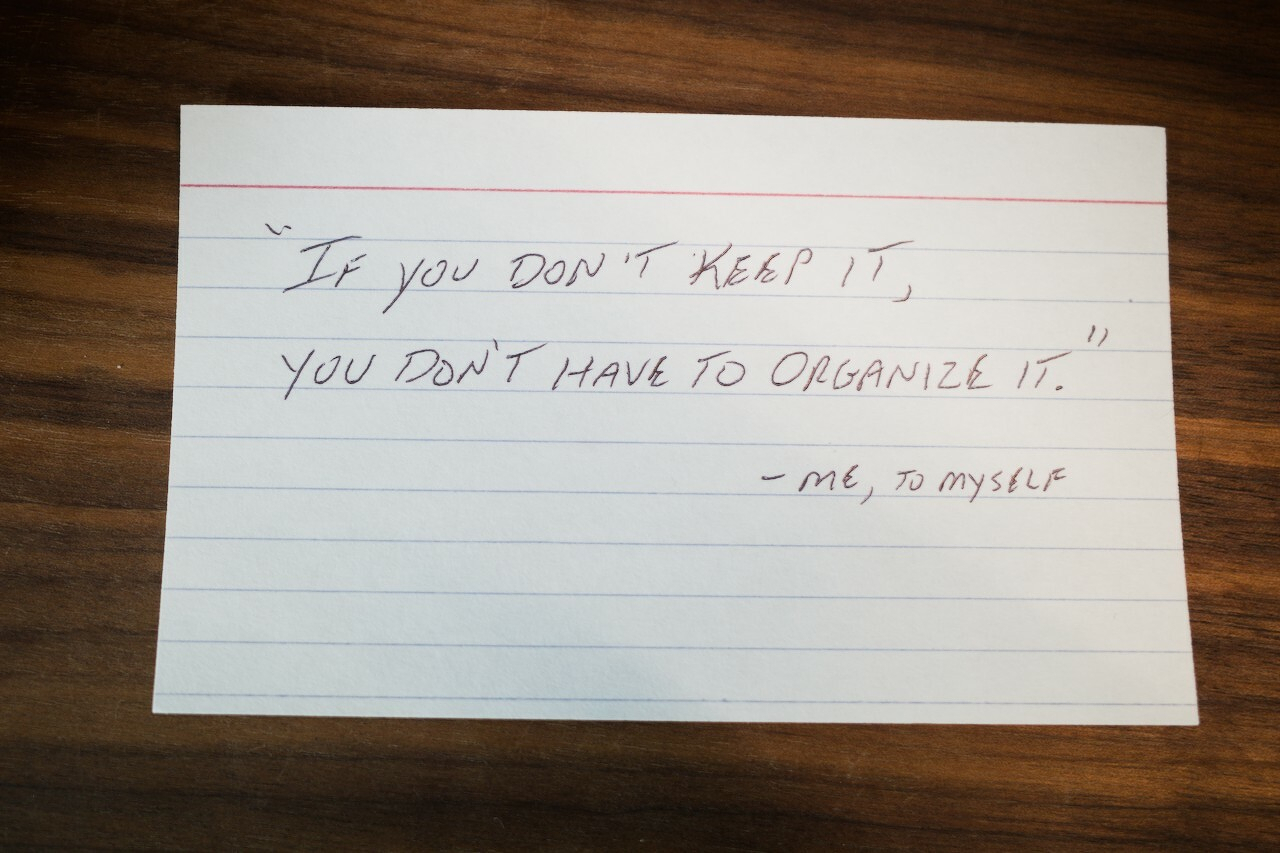 "IF YOU DON'T KEEP IT,
YOU DON'T HAVE TO ORGANIZE IT."
- ME, TO MYSELF